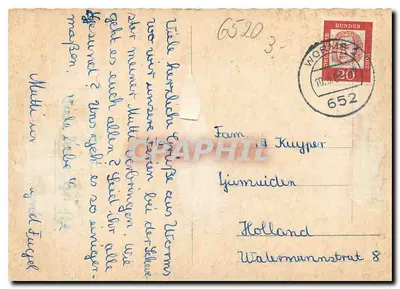 6520
3-
BUNDES
20
WORMS 1
652
Viele herzliche Grüße aus Worms
wo wir unsere Ferien bei der Schwe
ster meiner Mutti verbringen. Wie
geht es euch allen? Seid ihr alle
gesund? Uns geht es so einiger-
maßen. Viele liebe
Mutti
Fam. A Kuyper
Genemuiden
Holland
Watermannstraat 8
CPAPHIL.COM